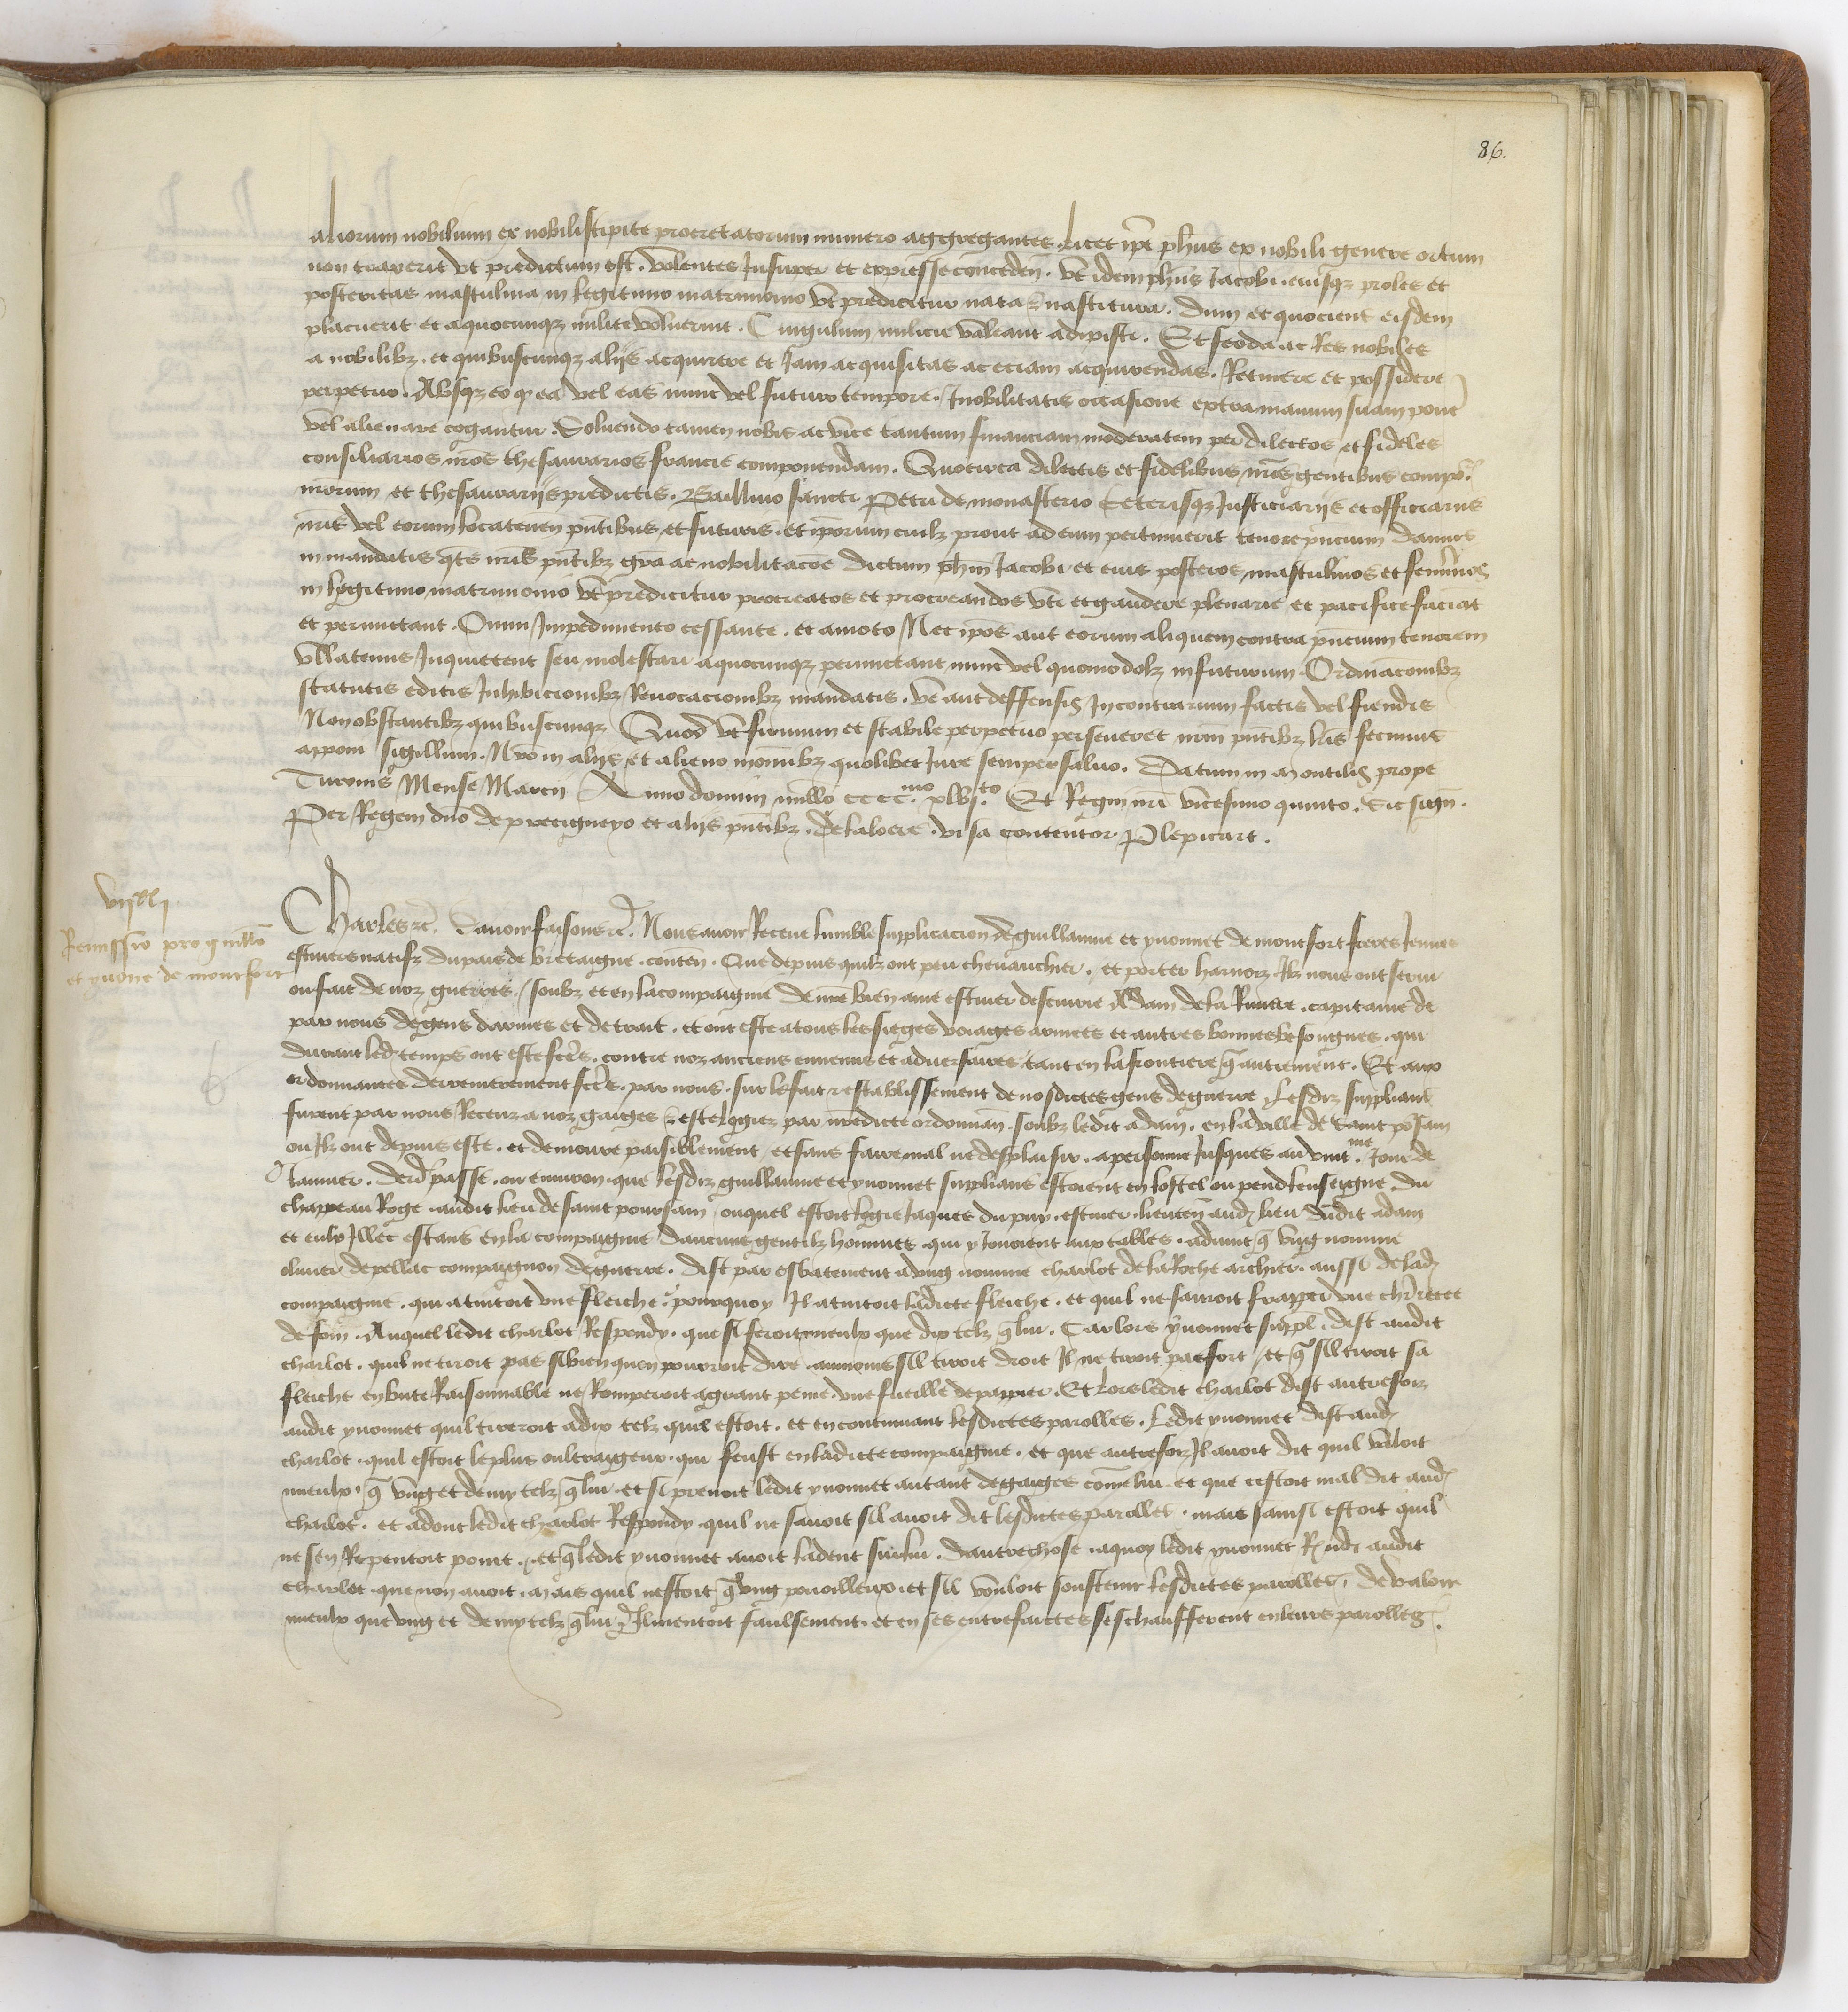 86.
aliorum nobilium ex nobili stipite procreatorum numero aggregantes. Licet ipe phus ex nobili genere ortum
non traxerit vt predictum est. Volentes Insuper et expresse conceden. Vt idem phus Jacobi. eiusq proles et
posteritas masculina in legitimo matrimonio vt predicitur nata & nascitura. Dum et quocient eisdem
placuerit et aquocunq milite voluerint. Cingulum milicie valeant adipisci. Et feoda ac Res nobiles
a nobilibz. et quibuscunq alijs acquirere et Jam acquisitas ac eciam acquirendas. Retinere et possidere
perpetuo. Absq eo q ea vel eas nunc vel futuro tempore. Inobilitatis occasione extra manum suam pone
vel alienare cogantur. Soluendo tamen nobis ac vice tantum financiam moderatam per dilectos et fideles
consiliarios nros thesaurarios francie componendam. Quocirca dilectis et fidelibus nris gentibus compo.
nrorum et thesaurarijs predictis. Baillivo sancti Petri de monasterio Ceterisq Justiciarijs et officiarijs
nris vel eorum locatenen pntibus et futuris. et iporum cuilz prout ad eum pertinuerit tenore pncium Damus
in mandatis qts nris pntibz gra ac nobilitacoe dictum phm Jacobi et eius posteros masculinos et femininos
in legitimo matrimonio vt predicitur procreatos et procreandos vti et gaudere plenarie et pacifice faciat
et permittant. Omni Impedimento cessante. et amoto Nec ipos aut eorum aliquem contra pncium tenorem
vllatenus Inquietent seu molestari aquocunq permittant nunc vel quomodolz in futurum. Ordinacombz
statutis editis Inhibicionibz Reuocacionibz mandatis. vt aut deffensis In contrarium factis vel fiendis
Non obstantibz quibuscunq Quod vt firmum et stabile perpetuo perseueret nrm pntibz lris fecimus
apponi sigillum. Nro in alijs et alieno in omibz quolibet Jure semper saluo. Datum in Montilis prope
Turonis Mense Marcij Anno domini millo cccc.mo xlvj.to Et Regni nri vicesimo quinto. Sic sign.
Per Regem dno de precigneyo et alijs pntibz. De laloere. visa contentor P lepicart.
vijxxj
Remissio pro guillmo
et yuone de montfort
Charles &c. Sauoir faisons &c. Nous auoir Receue lumble supplicacion de guillaume et yuonnet de montfort freres Jeunes
escuiers natifz du pais de bretaigne. conten. Que depuis quilz ont peu cheuauchier. et porter harnoiz Ilz nous ont serui
ou fait de noz guerres. soubz et en la compaignie de nre bien ame escuier descuirie Adam de la Riuiere. capitaine de
par nous de gens darmes et de trait. et ont este a tous les sieges voiages armees et autres bonnes besongnes. qui
durant led temps ont este fctes. contre noz anciens ennemis et aduersaires tant en la frontiere q autrement. Et aux
ordonnances derrenierement fctes. par nous. sur le fait restablissement de nosdictes gens de guerre Lesdiz suppliant
furent par nous Receuz a noz gaiges & este logiez par nredicte ordonnan. soubz ledit adam. en la ville de Saint posam
ou Ilz ont depuis este. et demoure paisiblement et sans faire mal ne desplaisir. a personne Jusques au viiie. Jour de
Januier. derd passe. ou enuiron que lesdiz guillaume et yuonnet suppliant estoient en lostel ou pend lenseigne du
chappeau Roge audit lieu de saint poursain ouquel estoit logie Jaques du puy. escuier. lieuten aud lieu dudit adam
et eulx Illec estans en la compaignie daucuns gentilz hommes qui y Jouoient aux tables. aduint q vng nomme
oliuier de pellac compaignon de guerre. dist par esbatement a vng nomme charlot de la Roche archier. aussi de lad
compaignie. qui atintoit vne fleiche. pourquoy Il atintoit ladicte fleiche. et quil ne sauroit frapper vne chrretee
de foin. Auquel ledit charlot Respondy. que si feroit mieulx que dix telz q lui. Et alors yuonnet suppl. dist audit
charlot. quil ne tiroit pas si bien quon pourroit dire. aumoins sil tiroit droit Il ne tiroit pas fort. et q sil tiroit sa
fleiche en bute Raisonnable ne Romperoit a grant peine vne fueille de papier. Et lors ledit charlot dist autresfoiz
audit yuonnet quil tireroit a dix telz quil estoit. et en continuant lesdictes parolles. Ledit yuonnet dist aud
charlot. quil estoit le plus oultraigeux qui feust en ladicte compaignie. et que autresfoiz Il auoit dit quil valoit
mieulx q vng et demy telz q lui et si prenoit ledit yuonnet autant de gaiges comme lui. et que cestoit mal dit aud
charlot. et adont ledit charlot Respondy quil ne sauoit sil auoit dit lesdictes parolles. mais sainsi estoit quil
ne sen Repentoit point. et q ledit yuonnet auoit la dent sur lui. dautre chose. aquoy ledit yuonnet Rnd audit
charlot que non auoit. Mais quil nestoit q vng pouilleux. et sil vouloit soustenir lesdictes parolles. de valoir
mieulx que vng et demy telz q lui. Il mentoit faulsement. et en ses entrefaictes seschaufferent en leurs parolles.